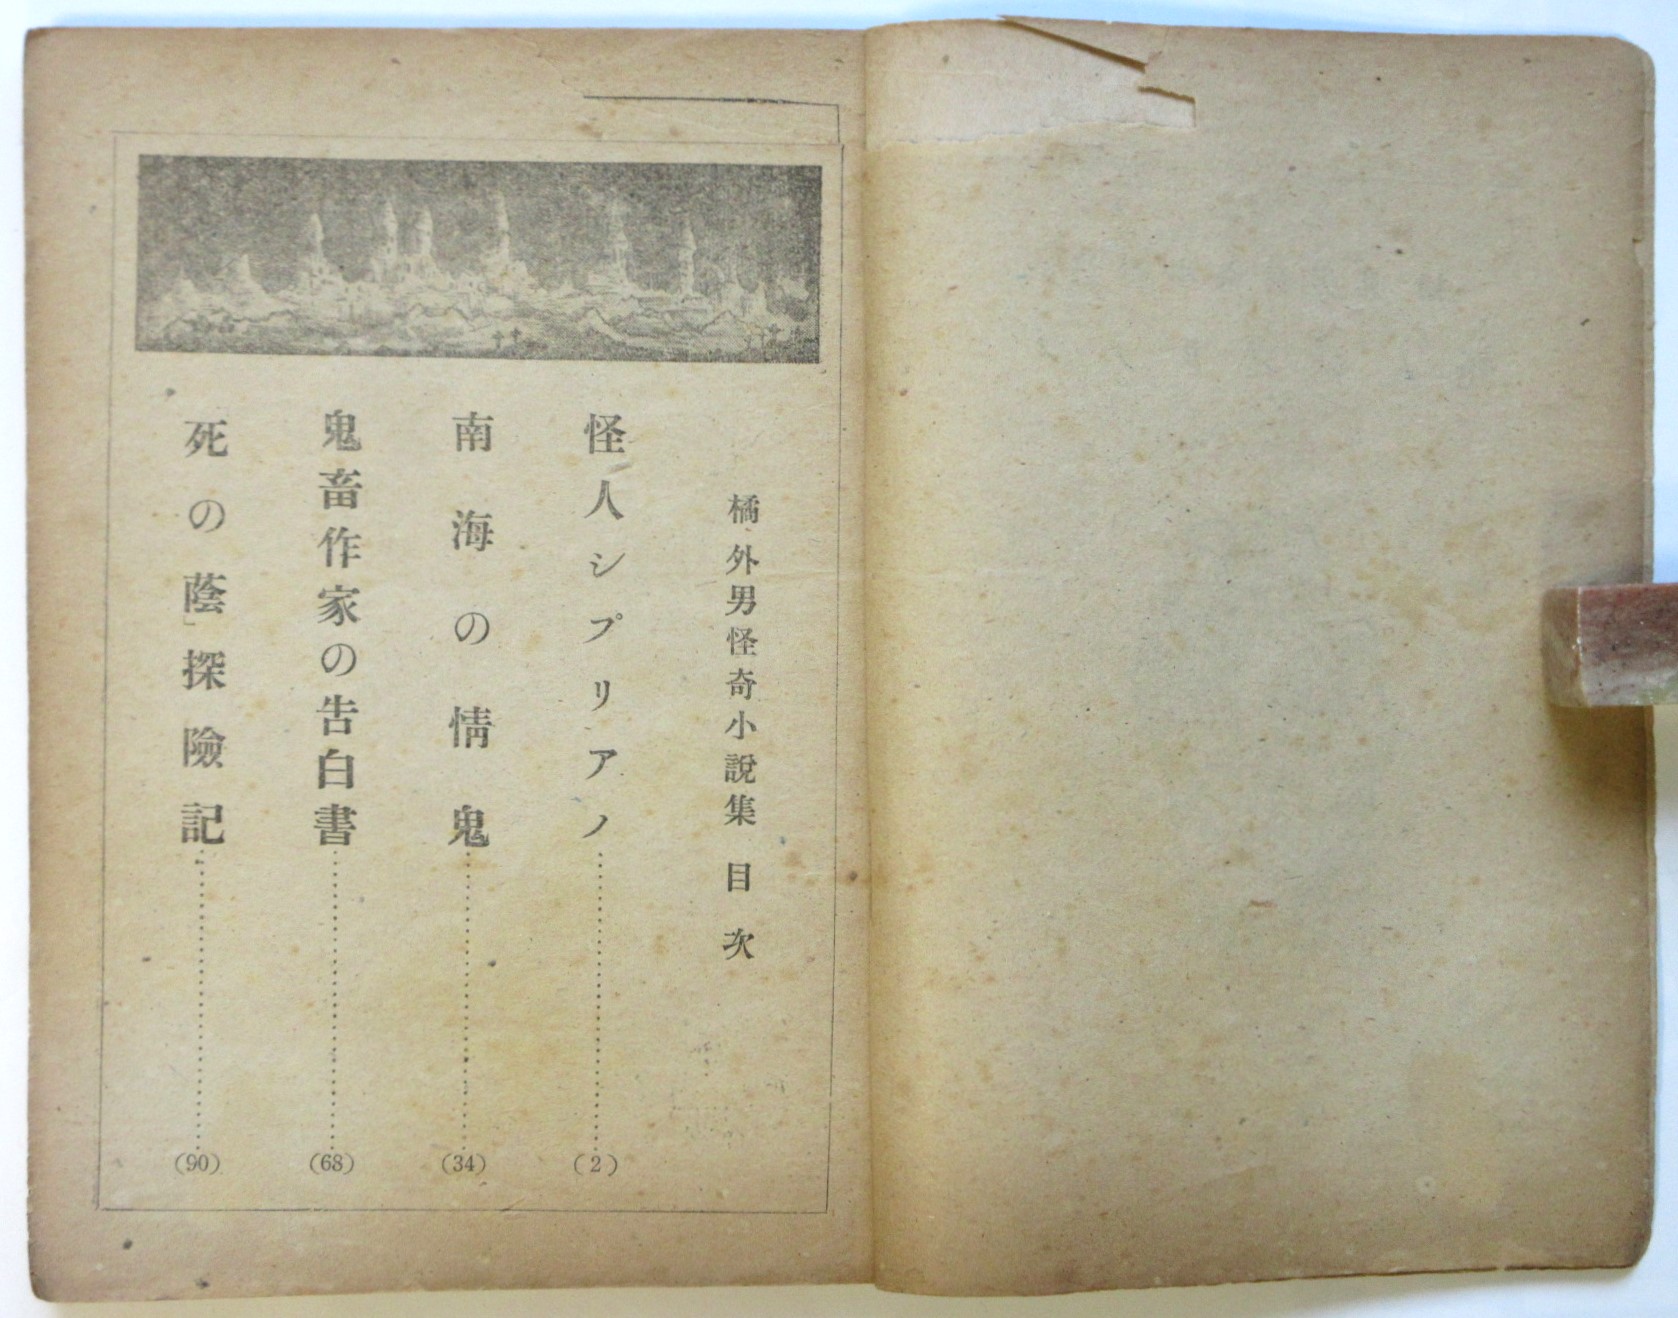 橘外男怪奇小說集 目次
怪人シプリアノ…………(2)
南海の情鬼…………(34)
鬼畜作家の告白書…………(68)
死の蔭探險記…………(90)